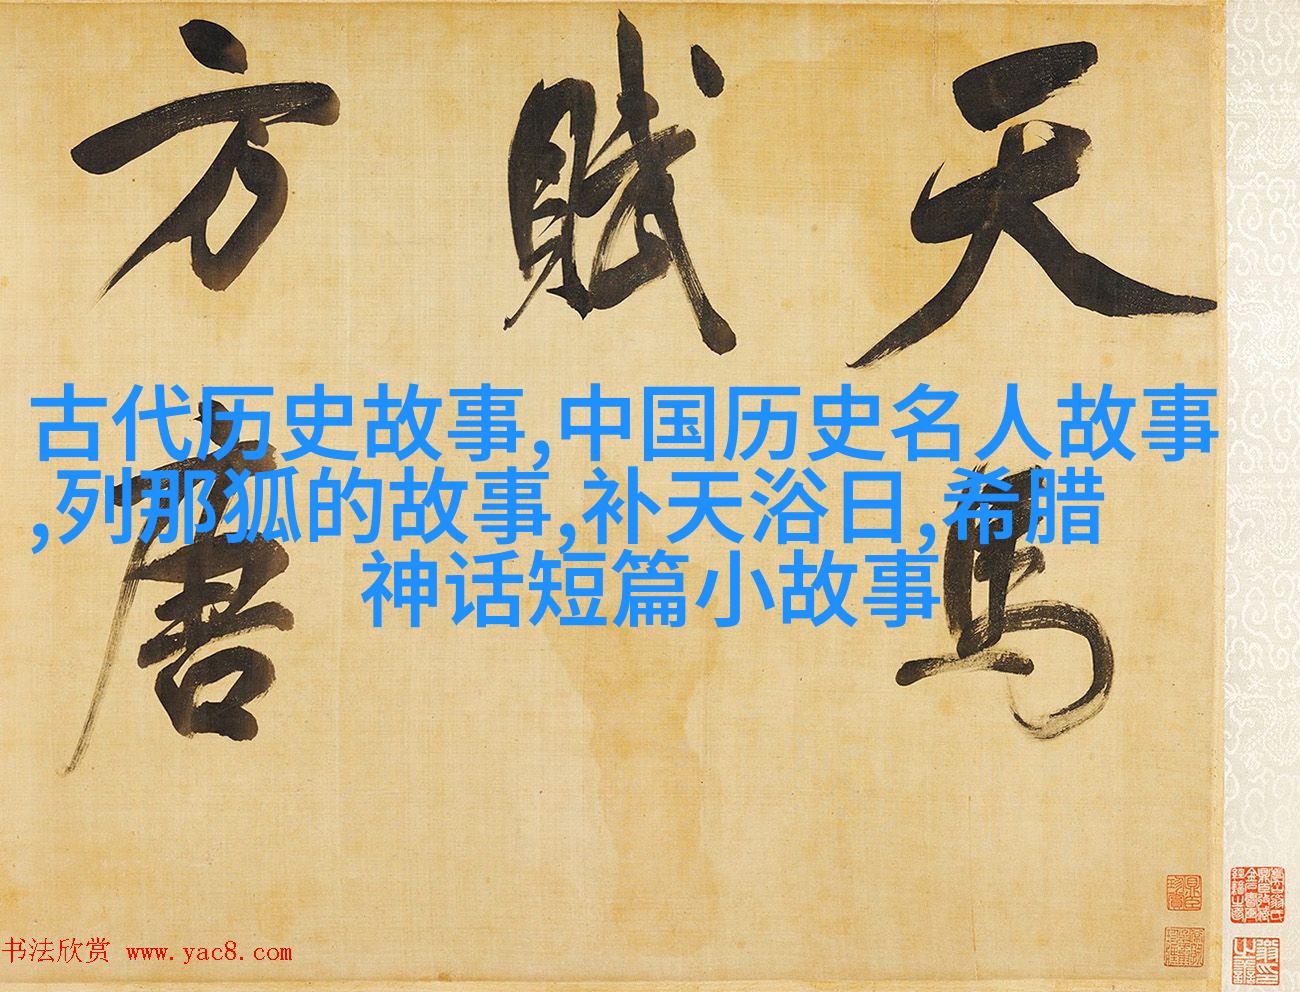 天馬
賦
方唐
古代历史故事,中国历史名人故事
,列那狐的故事,补天浴日,希腊
神话短篇小故事
书法欣赏 www.yac8.com